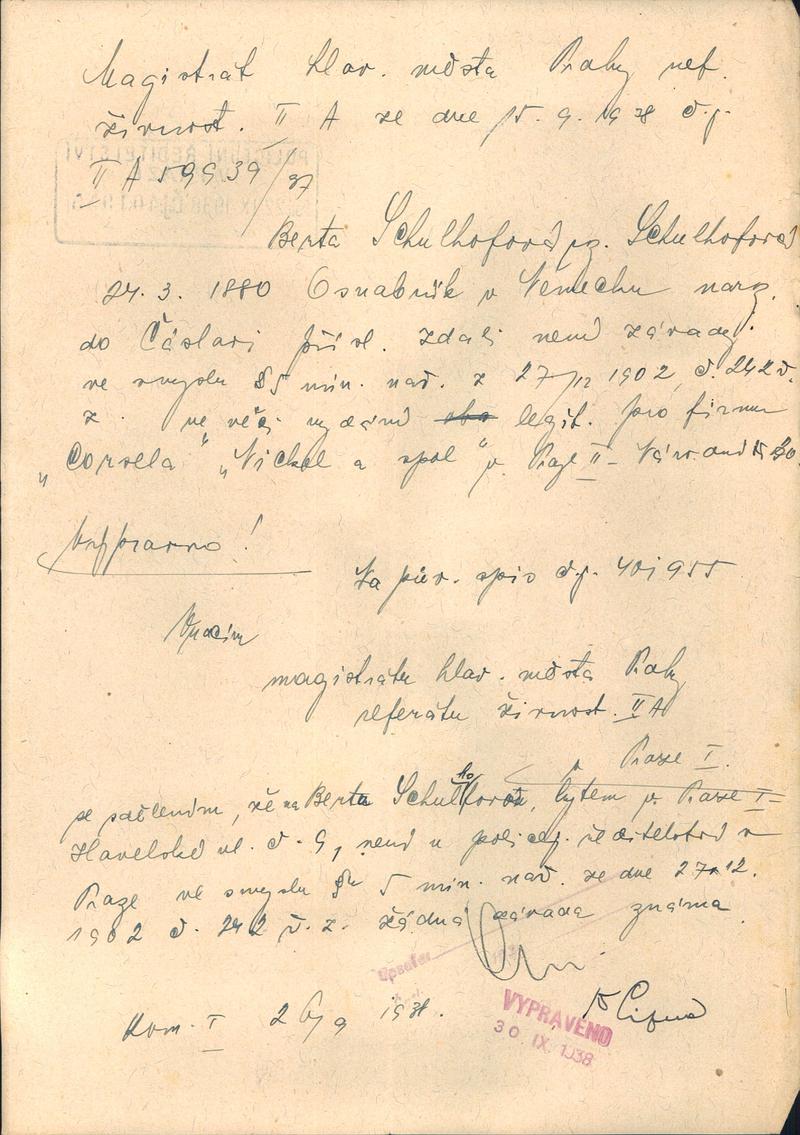 Magistrát hlav. města Prahy ref.
živnost. II A ze dne 15. 9. 1938 č.j.
II A 59939/37
Berta Schulhofová roz. Schulhofová
24. 3. 1880 Osnabrük v Německu nar.
do Čáslavi přísl. zdali není závady
ve smyslu § 5 min. nař. z 27/12 1902, č. 242 ř.
z. ve věci vydání legit. pro firmu
„Corsela" „Nickel a spol" v Praze II - 30.
Vypraveno!
Na pův. spis č.j. 401955
Vracím
magistrátu hlav. města Prahy
referátu živnost. II A
v Praze I.
se sdělením, že na Bertu Schulhofovou, bytem v Praze I -
Havelská ul. č. 9, není u policej. ředitelství v
Praze ve smyslu § 5 min. nař. ze dne 27. 12.
1902 č. 242 ř. z. žádná závada známa
Kom. I 26/9 1938.
VYPRAVENO
30 IX. 1938